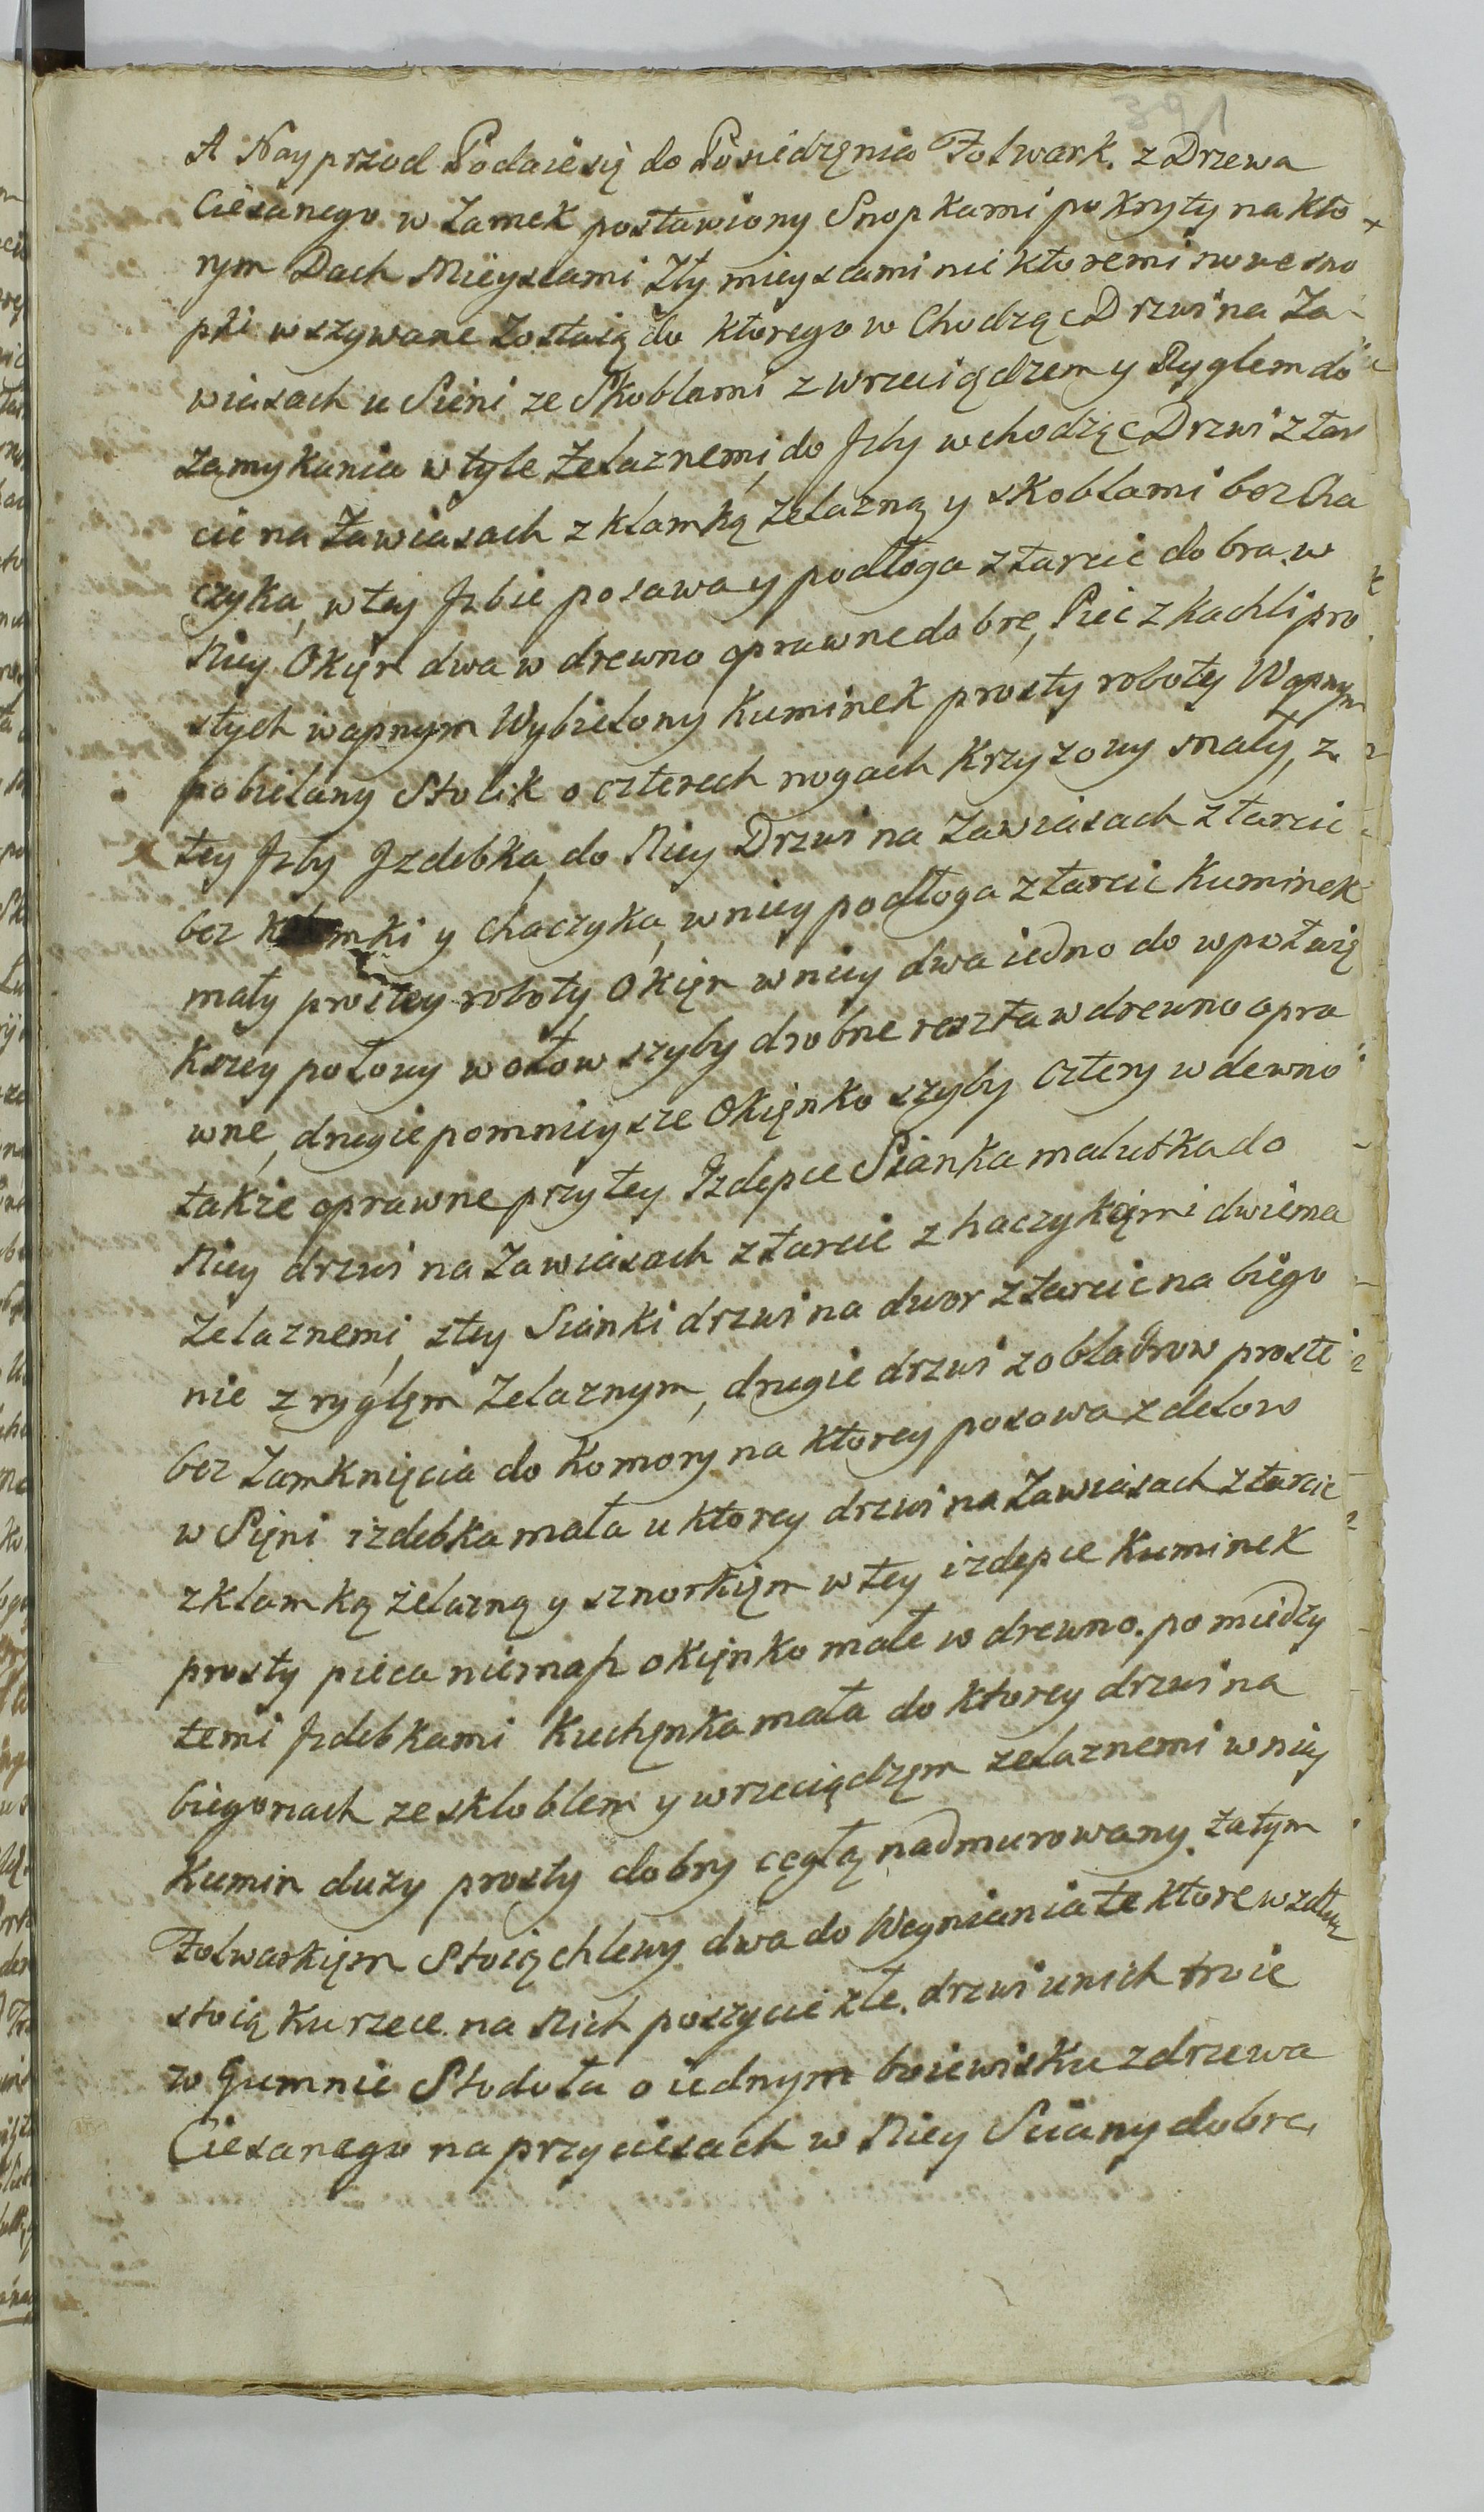 391
A Nayprzod Podaie się do Posiedzęnia Folwark. z Drzewa
Ciesanego w Zamek postawiony Snopkami pokryty na kto
rym Dach Mieyscami zły mieyscami nie ktoremi nowe sno
pki wszywane Zostaią do ktorego w Chodząc Drzwi na Za
wiasach u Sieni ze Skoblami z wrzeciądzem y Ryglem do
zamykania w tyle żelaznemi, do Jzby wchodząc Drzwi z tar
cic na Zawiasach z klamką żelazną y skoblami bez Cha
czyka, w tej Jzbie posawa y podłoga z tarcic dobra. w
Niey Okięn dwa w drewno oprawne dobre, Piec z kachli pro
stych wapnym Wybielony Kuminek prosty roboty Wapnym
pobielany Stolik o czterech nogach Krzyzowy Mały, z
tey Jzby Jzdebka, do Niey Drzwi na Zawiasach z tarcic
bez klamki y chaczyka, w niey podłoga z tarcic Kuminek
mały prostey roboty, Okięn w niey dwa iedno do wpoł wię
kszey połowy w ołow szyby drobne reszta w drewno opra
wne, drugie pomnieysze Okięnko szyby cztery w dewno
takze oprawne przy tey Jzdepce Sianka malutka do
Niey drzwi na Zawiasach z tarcic z haczykami dwiema
żelaznemi, z tey Sianki drzwi na dwor z tarcic na biego
nie z ryglęm Zelaznym, drugie drzwi z obladrow proste
bez Zamknięcia do Komory na ktorey posowa z delow
w Sięni izdebka mała u ktorey drzwi na Zawiasach z tarcic
z klamką żelazną y sznorkięm w tey izdepce Kuminek
prosty pieca niemasz okięnko małe w drewno. po miedzy
temi Jzdebkami Kuchęnka mała do ktorey drzwi na
biegonach ze skloblem y wrzeciądzęm zelaznemi w niey
Kumin duży prosty dobry cegłą nadmurowany. za tym
Folwarkięm Stoią chlewy dwa do Wegniania te ktore wzdłuz
stoią kurzece. na Nich poszycie złe. drzwi unich troie
w Gumnie Stodoła o iednym boiewisku z drzewa
Ciesanego na przyciesach w Niey Sciany dobre,